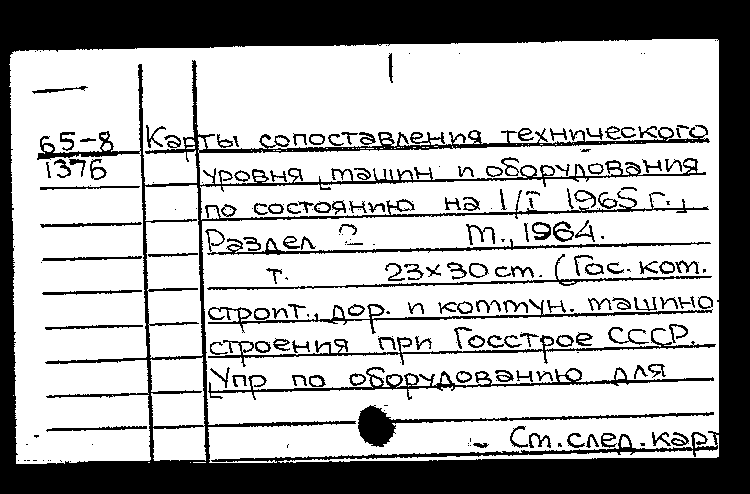 65-8
1376
Карты сопоставления технического
уровня [машин и оборудования
по состоянию на 1/I 1965 г.]
Раздел 2. М., 1964.
т. 23×30 см. (Гос. ком.
строит., дор. и коммун. машино-
строения при Госстрое СССР.
[Упр по оборудованию для
См. след. карт